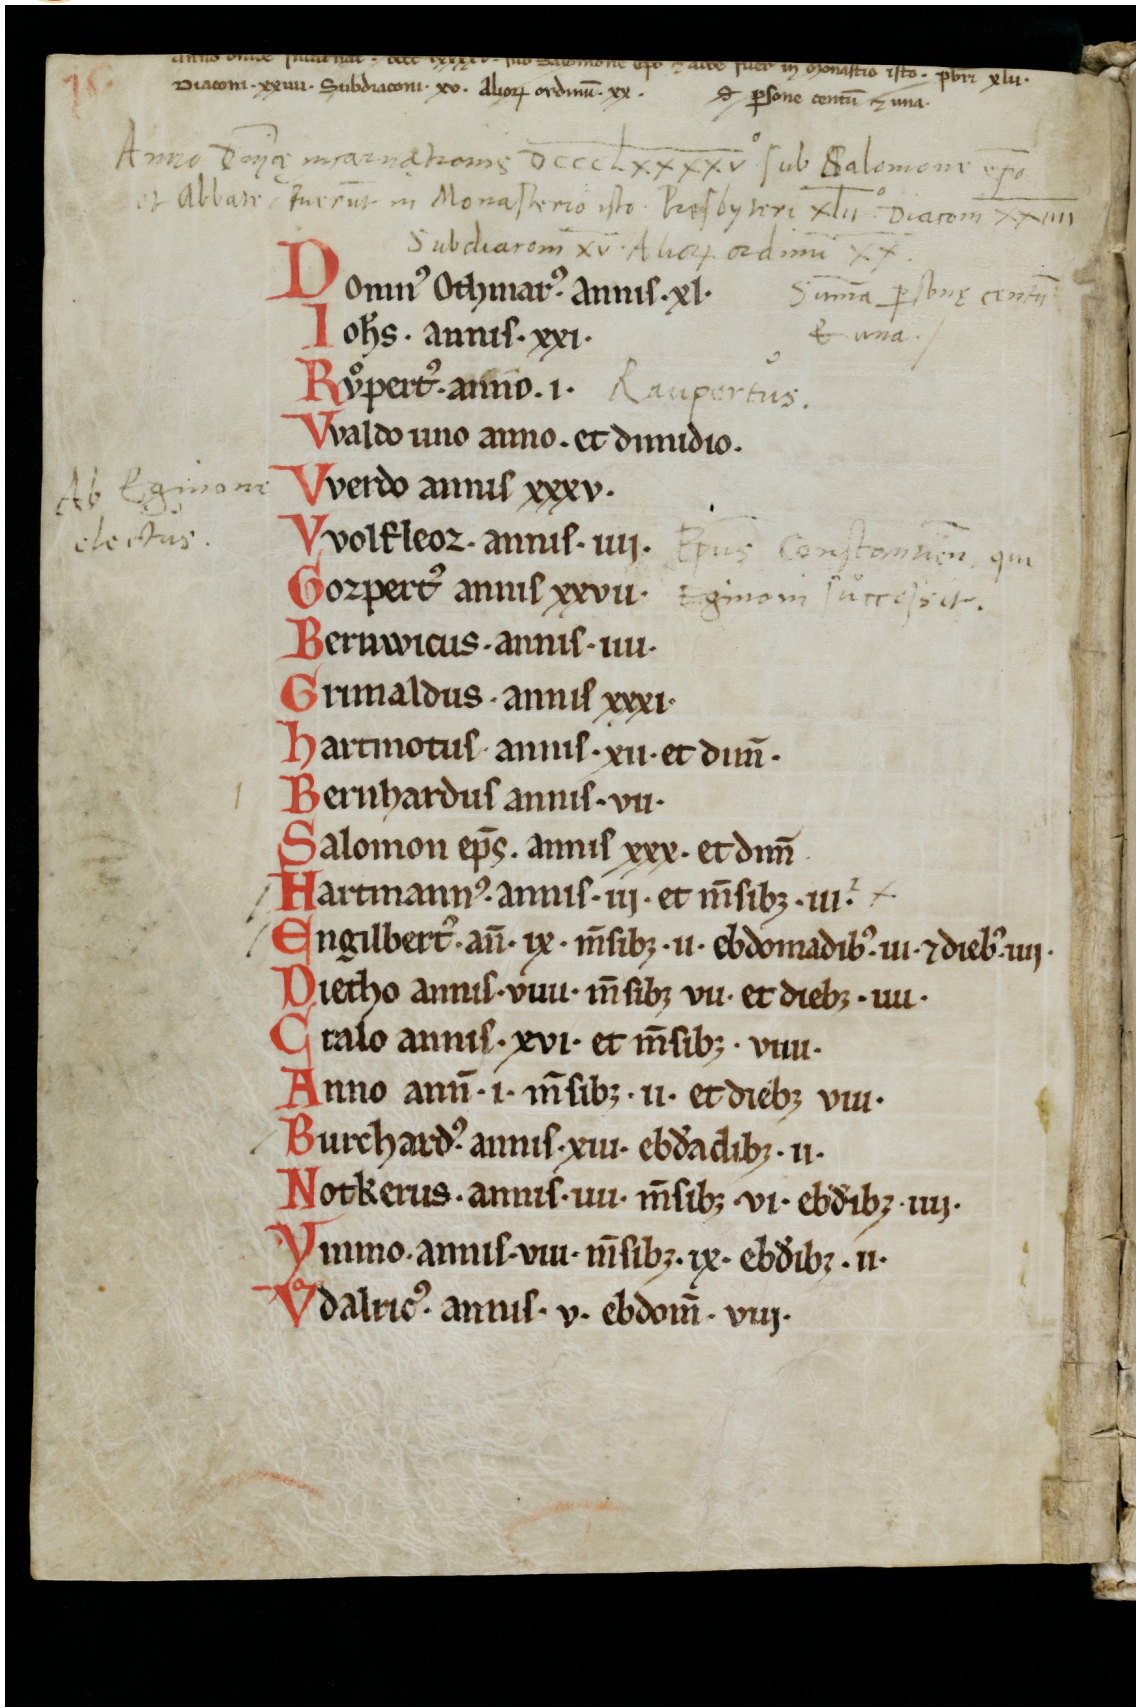 16.
anno dn̄ice incarnat. dccc lxxxxv. sub Salomone ep̄o ⁊ abbe fuer̄ in monast̄io isto. pb̄ri xlii.
Diaconi. xxiiii. Subdiaconi. xv. Alioꝝ ordinū. xx. ꝑsone centū ⁊ una.
Anno Dn̄icę incarnationis DCCCLXXXXV° sub Salomone ep̄o
et Abbate, fuerūt in Monasterio isto. Presbyteri xlii. Diaconi XXIIII
Subdiaconi XV. Alioꝝ ordinū XX.
Sum̄a ꝑsonę centū
& una.
Domnꝰ Othmarꝰ. annis. xl.
Ioh̄s. annis. xxi.
Rv̊pertꝰ. anno. i. Raupertus.
Vvaldo uno anno. et dimidio.
Ab Eginone
electus.
Vverdo annis xxxv.
Vvolfleoz. annis. iiij. Ep̄us Constantien̄, qui
Gozpertꝰ annis xxvii. Eginoni successit.
Bernwicus. annis. iiii.
Grimaldus. annis xxxi.
hartmotus. annis. xii. et dim̄.
Bernhardus annis. vii.
Salomon ep̄s. annis xxx. et dim̄
Hartmannꝰ. annis. iij. et m̄sibꝫ. iii.
Engilbertꝰ. an̄. ix. m̄sibꝫ. ii. ebdomadibꝰ. iii. ⁊ diebꝰ. iiij.
Dietho annis. viiii. m̄sibꝫ vii. et diebꝫ. iiii.
Cralo annis. xvi. et m̄sibꝫ. viiii.
Anno ann̄. i. m̄sibꝫ. ii. et diebꝫ viii.
Burchardꝰ. annis. xiii. ebd̄adibꝫ. ii.
Notkerus. annis. iiii. m̄sibꝫ. vi. ebd̄ibꝫ. iiij.
Ymmo. annis. viii. m̄sibꝫ. ix. ebd̄ibꝫ. ii.
V̊dalricꝰ. annis. v. ebdom̄. viij.